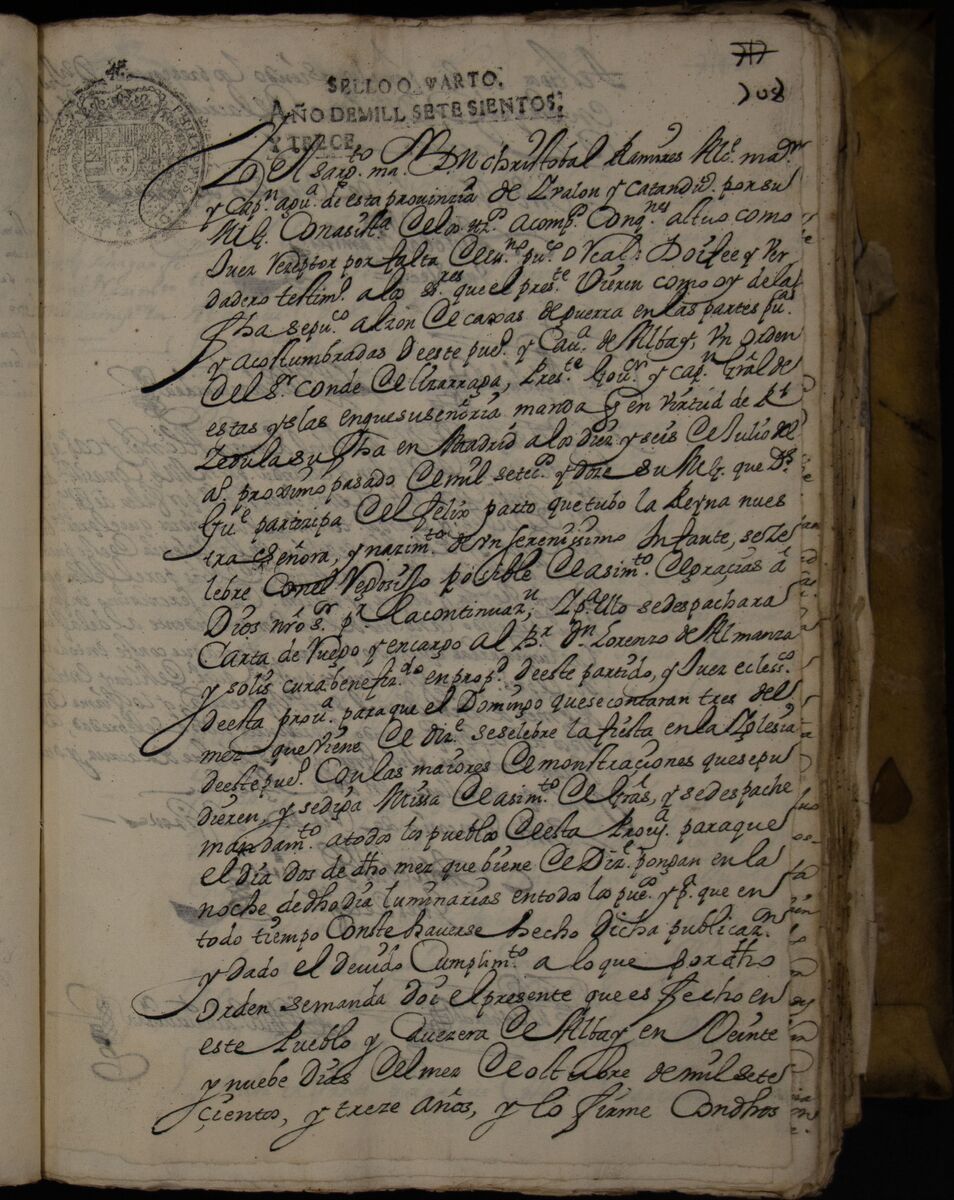 708
SELLO QUARTO,
AÑO DE MILL SETESIENTOS,
Y TREZE
El Sargto. ma. Dn Christobal Ramires Alce. maor
y Capn aguа. de esta provincia de Yralon y Catandus. por su
Mag. Con asistа. de los ynfos. acompos. Con qnes actuo como
Juez Rezeptor por falta de esno. puco. o Real: Doi fee y Ver
dadero testimo. a los Sres que el preste. Vieren como oy dela
fha se puco. a son de caxas de guerra en las partes pucas
y acostumbradas de este puo. y Cava. de Albay, Vn orden
del Sr. Conde de Lizarraga, Preste. Gour. y capn Gral de
estas yslas en que su señoria manda q en virtud de Rl
Zedula su fha en Madrid a los Diez y seis de Julio del
ao. proximo pasado de mil seteos. y doze su Mag. que Ds
Gue. participa el felix parto que tubo la Reyna nues
tra Señora, y nazimto. de Vn serenissimo Infante, se ze
lebre Con el Regosisso posible de asimto. de graçias â
Dios nro Sr. pr la continuazn, Y pa. ello se despachara
Carta de Ruego y encargo al Br. Dn Lorenzo de Almanza
y solis cura benefizdo. en propd. de este partido, y Juez eclessco.
de esta prova. para que el Domingo que se contaran tres del
mez que viene de Dize. se selebre la fiesta en la Yglesia
de este puo. Con las maiores demonstraçiones que se pu
dieren, y se diga Missa de asimto. de Gras, y se despache
mandamto. a todos los pueblos de esta Prova. para que
el dia dos de dho mez que biene de Dize. pongan en la
noche de dho dia luminarias en todos los pueos. y pa. que en
todo tiempo Conste haverse hecho dicha publicazon
y dado el devido Cumplimto. a lo que por dho
Orden se manda Doi el presente que es fecho en
este Pueblo y Cavezera de Albay en Veinte
y nuebe Dias del mez de octubre de mil sete
çientos, y treze años, y lo firme Con dhos